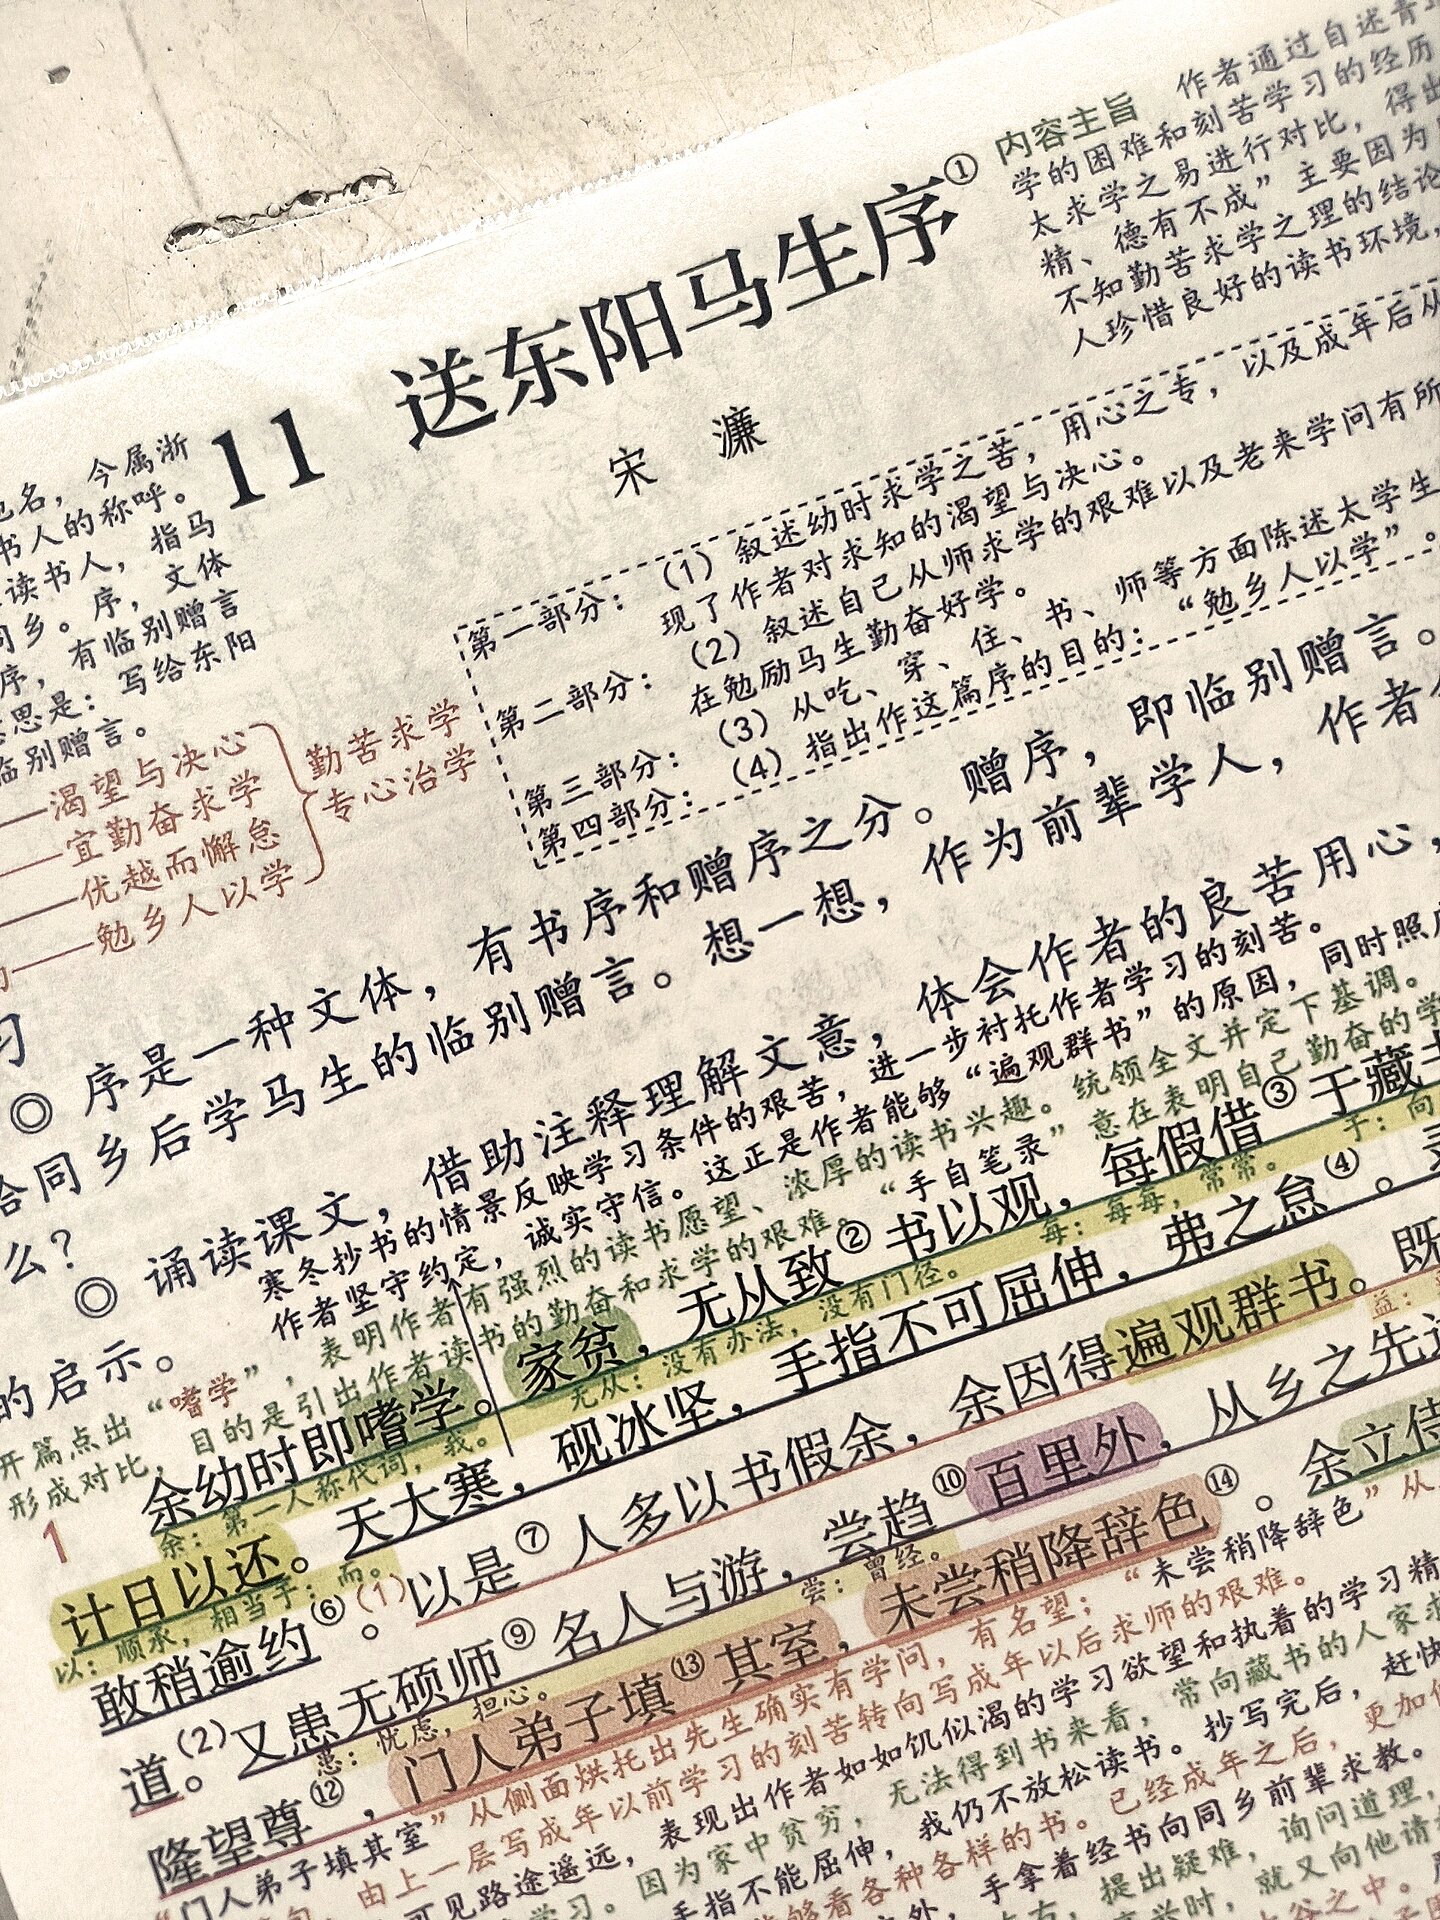 内容主旨 作者通过自述青
学的困难和刻苦学习的经历
太求学之易进行对比，得出
精、德有不成”主要因为
不知勤苦求学之理的结论
人珍惜良好的读书环境，
11 送东阳马生序①
宋 濂
名，今属浙
书人的称呼。
读书人，指马
同乡。序，文体
序，有临别赠言
意思是：写给东阳
临别赠言。
——渴望与决心
——宜勤奋求学
——优越而懈怠
——勉乡人以学
勤苦求学
专心治学
第一部分：（1）叙述幼时求学之苦，用心之专，以及成年后从
现了作者对求知的渴望与决心。
第二部分：（2）叙述自己从师求学的艰难以及老来学问有所
在勉励马生勤奋好学。
第三部分：（3）从吃、穿、住、书、师等方面陈述太学生
第四部分：（4）指出作这篇序的目的：“勉乡人以学”。
习
◎ 序是一种文体，有书序和赠序之分。赠序，即临别赠言。
给同乡后学马生的临别赠言。想一想，作为前辈学人，作者
么？
◎ 诵读课文，借助注释理解文意，体会作者的良苦用心，
的启示。
寒冬抄书的情景反映学习条件的艰苦，进一步衬托作者学习的刻苦。
作者坚守约定，诚实守信。这正是作者能够“遍观群书”的原因，同时照
开篇点出“嗜学”，表明作者有强烈的读书愿望、浓厚的读书兴趣。统领全文并定下基调。
形成对比，目的是引出作者读书的勤奋和求学的艰难。“手自笔录”意在表明自己勤奋的学
1 余幼时即嗜学。家贫，无从致②书以观，每假借③于藏书
余：第一人称代词，我。 无从：没有办法，没有门径。 每：每每，常常。 于：向
计日以还。天大寒，砚冰坚，手指不可屈伸，弗之怠④。
以：顺承，相当于：而。
敢稍逾约⑥。(1)以是⑦人多以书假余，余因得遍观群书。既
益：
道。(2)又患无硕师⑨名人与游，尝趋⑩百里外，从乡之先达
患：忧虑，担心。 尝：曾经。
隆望尊⑫，门人弟子填⑬其室，未尝稍降辞色⑭。余立侍
“门人弟子填其室”从侧面烘托出先生确实有学问，有名望；“未尝稍降辞色”从
由上一层写成年以前学习的刻苦转向写成年以后求师的艰难。
可见路途遥远，表现出作者如如饥似渴的学习欲望和执着的学习精
学习。因为家中贫穷，无法得到书来看，常向藏书的人家求
手指不能屈伸，我仍不放松读书。抄写完后，赶快
能够看各种各样的书。已经成年之后，更加
外，手拿着经书向同乡前辈求教。
提出疑难，询问道理，
时，就又向他请
谷之中。